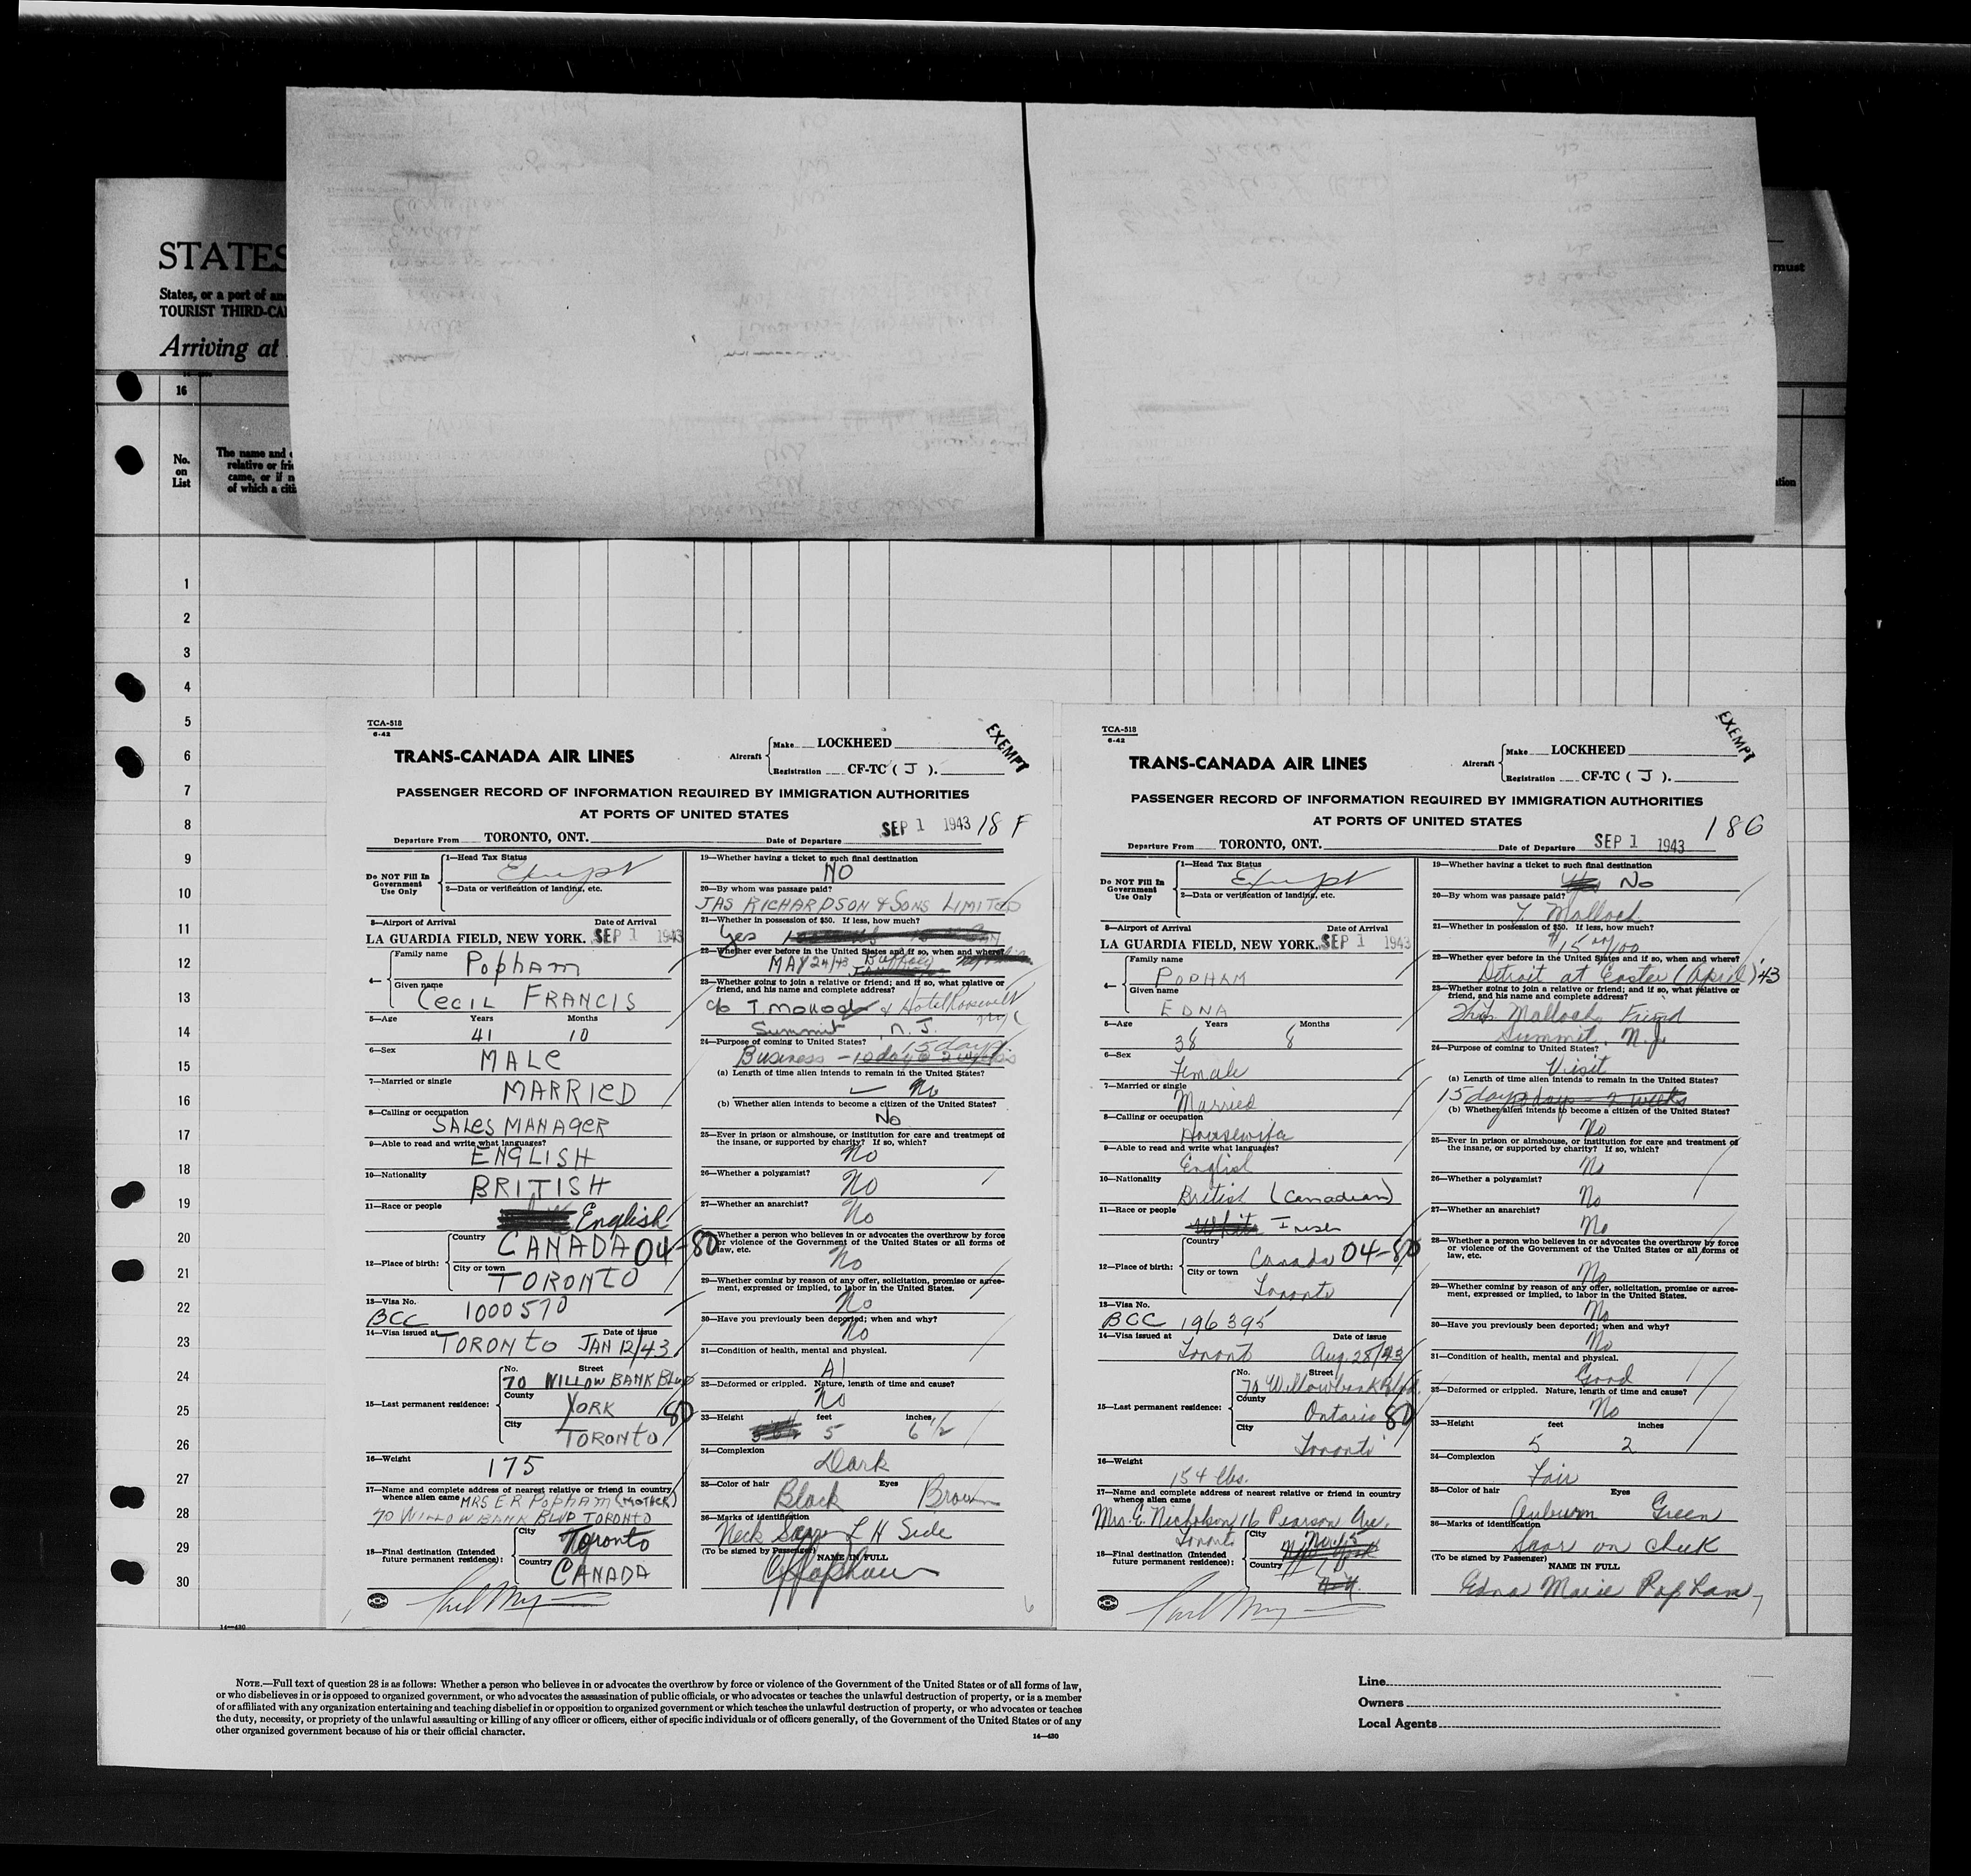 STATES
States, or a port of
TOURIST THIRD-CA
Arriving at
must
16
No.
on
List
The name and
relative or
came, or if n
of which a
1
2
3
4
5
6
7
8
9
10
11
12
13
14
15
16
17
18
19
20
21
22
23
24
25
26
27
28
29
30
TCA-518
6-42
TRANS-CANADA AIR LINES
Aircraft
Make LOCKHEED
Registration CF-TC ( J ).
EXEMPT
PASSENGER RECORD OF INFORMATION REQUIRED BY IMMIGRATION AUTHORITIES
AT PORTS OF UNITED STATES
SEP 1 1943 18 F
Departure From TORONTO, ONT. Date of Departure
Do NOT Fill In
Government
Use Only
1—Head Tax Status
Exempt
2—Data or verification of landing, etc.
3—Airport of Arrival Date of Arrival
LA GUARDIA FIELD, NEW YORK. SEP 1 1943
4—
Family name
Popham
Given name
Cecil Francis
5—Age Years Months
41 10
6—Sex
MALE
7—Married or single
MARRIED
8—Calling or occupation
SALES MANAGER
9—Able to read and write what languages?
ENGLISH
10—Nationality
BRITISH
11—Race or people
English
12—Place of birth:
Country
CANADA 04-80
City or town
TORONTO
13—Visa No.
BCC 1000570
14—Visa issued at Date of issue
TORONTO JAN 12/43
15—Last permanent residence:
No. Street
70 WILLOW BANK BLVD
County
YORK 80
City
TORONTO
16—Weight
175
17—Name and complete address of nearest relative or friend in country
whence alien came MRS E R POPHAM (MOTHER)
70 WILLOW BANK BLVD TORONTO
18—Final destination (Intended
future permanent residence):
City
Toronto
Country
CANADA
19—Whether having a ticket to such final destination
NO
20—By whom was passage paid?
JAS RICHARDSON & SONS LIMITED
21—Whether in possession of $50. If less, how much?
Yes
22—Whether ever before in the United States and if so, when and where?
MAY 24/43 Buffalo
23—Whether going to join a relative or friend; and if so, what relative or
friend, and his name and complete address?
c/o T Malloch & Hotel Roosevelt
Summit N.J. NYC
24—Purpose of coming to United States? 15 days
Business – 10 days 2 weeks
(a) Length of time alien intends to remain in the United States?
No
(b) Whether alien intends to become a citizen of the United States?
No
25—Ever in prison or almshouse, or institution for care and treatment of
the insane, or supported by charity? If so, which?
No
26—Whether a polygamist?
No
27—Whether an anarchist?
No
Whether a person who believes in or advocates the overthrow by force
or violence of the Government of the United States or all forms of
law, etc.
No
29—Whether coming by reason of any offer, solicitation, promise or agree-
ment, expressed or implied, to labor in the United States.
No
30—Have you previously been deported; when and why?
No
31—Condition of health, mental and physical.
A1
32—Deformed or crippled. Nature, length of time and cause?
No
33—Height feet inches
5 6 1/2
34—Complexion
Dark
35—Color of hair Eyes
Black Brown
36—Marks of identification
Neck Scar L H Side
(To be signed by Passenger) NAME IN FULL
CFPopham
6
TCA-518
6-42
TRANS-CANADA AIR LINES
Aircraft
Make LOCKHEED
Registration CF-TC ( J ).
EXEMPT
PASSENGER RECORD OF INFORMATION REQUIRED BY IMMIGRATION AUTHORITIES
AT PORTS OF UNITED STATES
186
SEP 1 1943
Departure From TORONTO, ONT. Date of Departure
Do NOT Fill In
Government
Use Only
1—Head Tax Status
Exempt
2—Data or verification of landing, etc.
3—Airport of Arrival Date of Arrival
LA GUARDIA FIELD, NEW YORK. SEP 1 1943
4—
Family name
POPHAM
Given name
EDNA
5—Age Years Months
38 8
6—Sex
Female
7—Married or single
Married
8—Calling or occupation
Housewife
9—Able to read and write what languages?
English
10—Nationality
British (Canadian)
11—Race or people
White Irish
12—Place of birth:
Country
Canada 04-80
City or town
Toronto
13—Visa No.
BCC 196395
14—Visa issued at Date of issue
Toronto Aug. 28/43
15—Last permanent residence:
No. Street
70 Willowbank Blvd.
County
Ontario 80
City
Toronto
16—Weight
154 lbs.
17—Name and complete address of nearest relative or friend in country
whence alien came
Mrs. E. Nicholson 16 Pearson Ave.
Toronto
18—Final destination (Intended
future permanent residence):
City
New York
Country
N.Y.
19—Whether having a ticket to such final destination
No
20—By whom was passage paid?
T. Malloch
21—Whether in possession of $50. If less, how much?
$15 00/100
22—Whether ever before in the United States and if so, when and where?
Detroit at Easter (April) '43
23—Whether going to join a relative or friend; and if so, what relative or
friend, and his name and complete address?
Malloch, Friend
Summit, N.J.
24—Purpose of coming to United States?
Visit
(a) Length of time alien intends to remain in the United States?
15 days – 2 weeks
(b) Whether alien intends to become a citizen of the United States?
No
25—Ever in prison or almshouse, or institution for care and treatment of
the insane, or supported by charity? If so, which?
No
26—Whether a polygamist?
No
27—Whether an anarchist?
No
28—Whether a person who believes in or advocates the overthrow by force
or violence of the Government of the United States or all forms of
law, etc.
No
29—Whether coming by reason of any offer, solicitation, promise or agree-
ment, expressed or implied, to labor in the United States.
No
30—Have you previously been deported; when and why?
No
31—Condition of health, mental and physical.
Good
32—Deformed or crippled. Nature, length of time and cause?
No
33—Height feet inches
5 2
34—Complexion
Fair
35—Color of hair Eyes
Auburn Green
36—Marks of identification
Scar on cheek
(To be signed by Passenger) NAME IN FULL
Edna Marie Popham
7
14—430
NOTE.—Full text of question 28 is as follows: Whether a person who believes in or advocates the overthrow by force or violence of the Government of the United States or of all forms of law,
or who disbelieves in or is opposed to organized government, or who advocates the assassination of public officials, or who advocates or teaches the unlawful destruction of property, or is a member
of or affiliated with any organization entertaining and teaching disbelief in or opposition to organized government or which teaches the unlawful destruction of property, or who advocates or teaches
the duty, necessity, or propriety of the unlawful assaulting or killing of any officer or officers, either of specific individuals or of officers generally, of the Government of the United States or of any
other organized government because of his or their official character.
14—430
Line
Owners
Local Agents